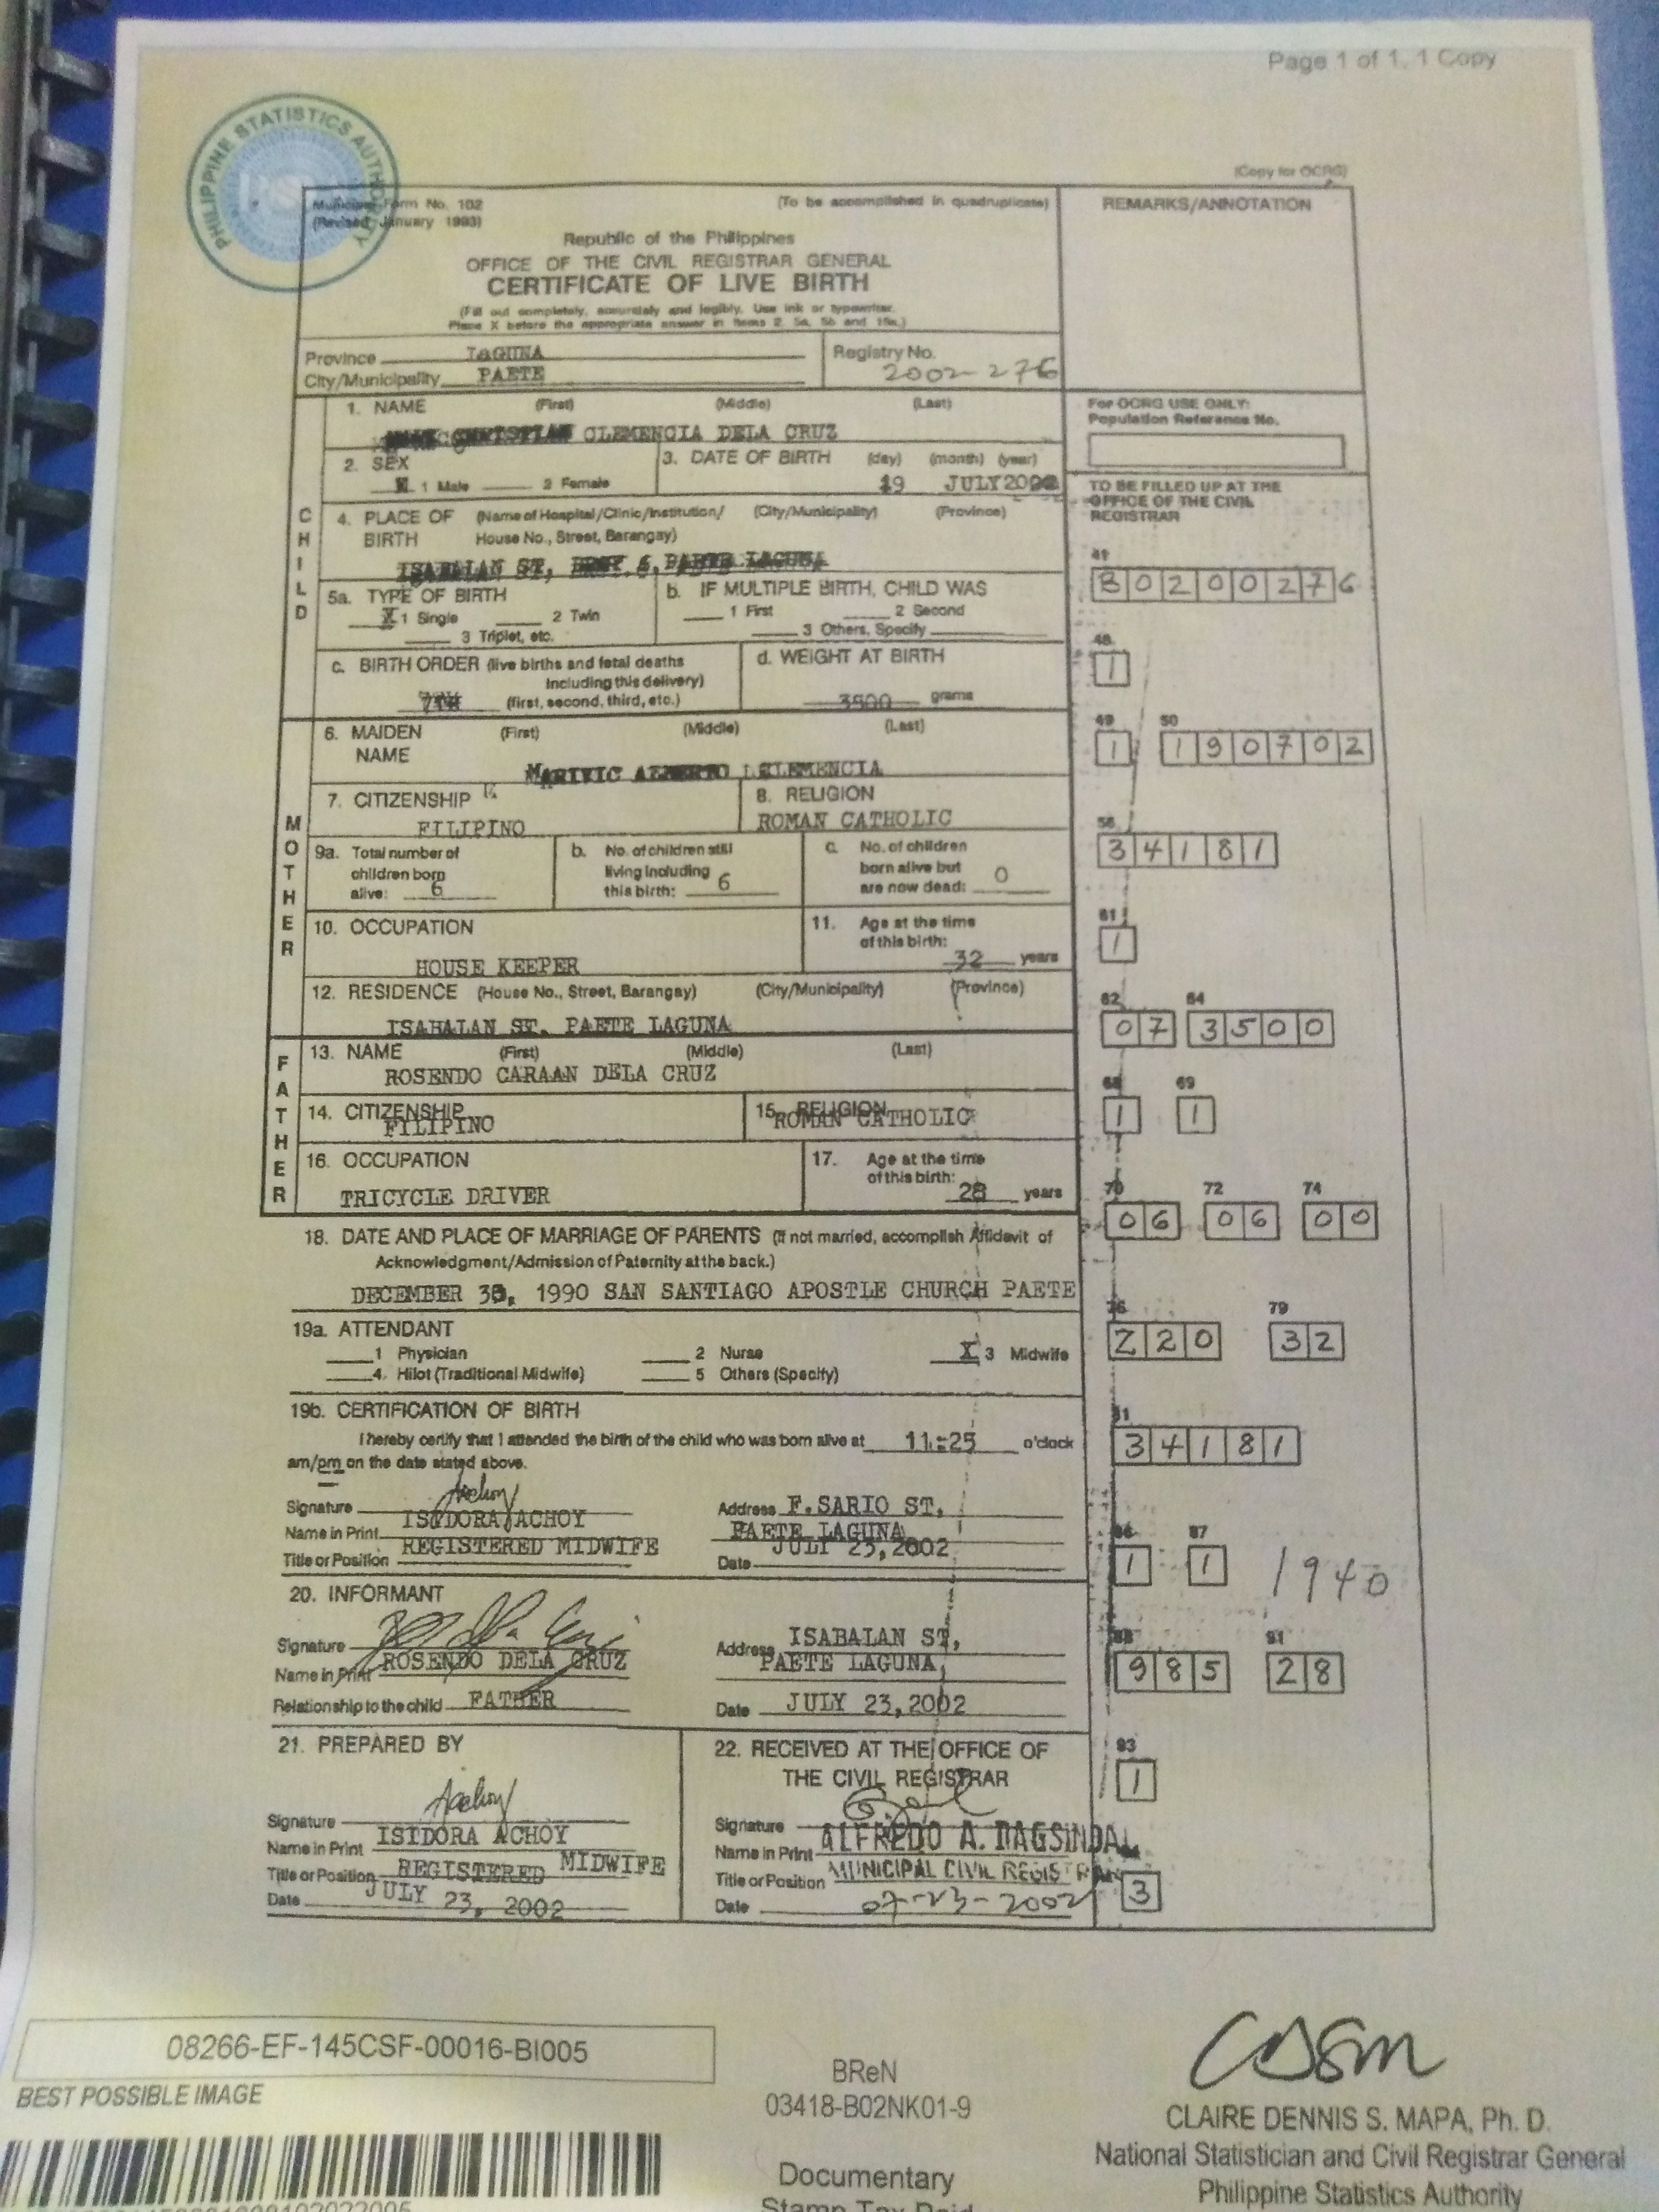 Page 1 of 1, 1 Copy
PHILIPPINE STATISTICS AUTHORITY
(Copy for OCRG)
Municipal Form No. 102
(Revised January 1993)
(To be accomplished in quadruplicate)
REMARKS/ANNOTATION
Republic of the Philippines
OFFICE OF THE CIVIL REGISTRAR GENERAL
CERTIFICATE OF LIVE BIRTH
(Fill out completely, accurately and legibly. Use ink or typewriter.
Place X before the appropriate answer in items 2, 5a, 5b and 19a.)
Province LAGUNA
City/Municipality PAETE
Registry No.
2002-276
CHILD
1. NAME (First) (Middle) (Last)
CHRISTIAN CLEMENCIA DELA CRUZ
For OCRG USE ONLY:
Population Reference No.
2. SEX
X 1 Male 2 Female
3. DATE OF BIRTH (day) (month) (year)
19 JULY 2002
TO BE FILLED UP AT THE
OFFICE OF THE CIVIL
REGISTRAR
4. PLACE OF BIRTH (Name of Hospital/Clinic/Institution/ House No., Street, Barangay) (City/Municipality) (Province)
ISABALAN ST, 6, PAETE LAGUNA
41
B0200276
5a. TYPE OF BIRTH
X 1 Single 2 Twin
3 Triplet, etc.
b. IF MULTIPLE BIRTH, CHILD WAS
1 First 2 Second
3 Others, Specify
48
1
c. BIRTH ORDER (live births and fetal deaths
including this delivery)
7TH (first, second, third, etc.)
d. WEIGHT AT BIRTH
3500 grams
49 50
1 190702
MOTHER
6. MAIDEN NAME (First) (Middle) (Last)
MARIVIC ALBERTO CLEMENCIA
7. CITIZENSHIP
FILIPINO
8. RELIGION
ROMAN CATHOLIC
56
34181
9a. Total number of
children born
alive: 6
b. No. of children still
living including
this birth: 6
c. No. of children
born alive but
are now dead: 0
10. OCCUPATION
HOUSE KEEPER
11. Age at the time
of this birth:
32 years
61
1
12. RESIDENCE (House No., Street, Barangay) (City/Municipality) (Province)
ISABALAN ST. PAETE LAGUNA
62 64
07 3500
FATHER
13. NAME (First) (Middle) (Last)
ROSENDO CARAAN DELA CRUZ
14. CITIZENSHIP
FILIPINO
15. RELIGION
ROMAN CATHOLIC
68 69
1 1
16. OCCUPATION
TRICYCLE DRIVER
17. Age at the time
of this birth:
28 years
70 72 74
06 06 00
18. DATE AND PLACE OF MARRIAGE OF PARENTS (If not married, accomplish Affidavit of
Acknowledgment/Admission of Paternity at the back.)
DECEMBER 30, 1990 SAN SANTIAGO APOSTLE CHURCH PAETE
76 79
220 32
19a. ATTENDANT
1 Physician 2 Nurse X 3 Midwife
4. Hilot (Traditional Midwife) 5 Others (Specify)
19b. CERTIFICATION OF BIRTH
I hereby certify that I attended the birth of the child who was born alive at 11:25 o'clock
am/pm on the date stated above.
81
34181
Signature Achoy
Name in Print ISIDORA ACHOY
Title or Position REGISTERED MIDWIFE
Address F.SARIO ST,
PAETE LAGUNA
Date JULY 23,2002
86 87
1 1 1940
20. INFORMANT
Signature
Name in Print ROSENDO DELA CRUZ
Relationship to the child FATHER
Address ISABALAN ST,
PAETE LAGUNA,
Date JULY 23,2002
88 91
985 28
21. PREPARED BY
Signature Achoy
Name in Print ISIDORA ACHOY
Title or Position REGISTERED MIDWIFE
Date JULY 23, 2002
22. RECEIVED AT THE OFFICE OF
THE CIVIL REGISTRAR
Signature
Name in Print ALFREDO A. DAGSINDAL
Title or Position MUNICIPAL CIVIL REGISTRAR
Date 07-23-2002
93
1
3
08266-EF-145CSF-00016-BI005
BEST POSSIBLE IMAGE
BReN
03418-B02NK01-9
Documentary
Stamp Tax Paid
CLAIRE DENNIS S. MAPA, Ph. D.
National Statistician and Civil Registrar General
Philippine Statistics Authority